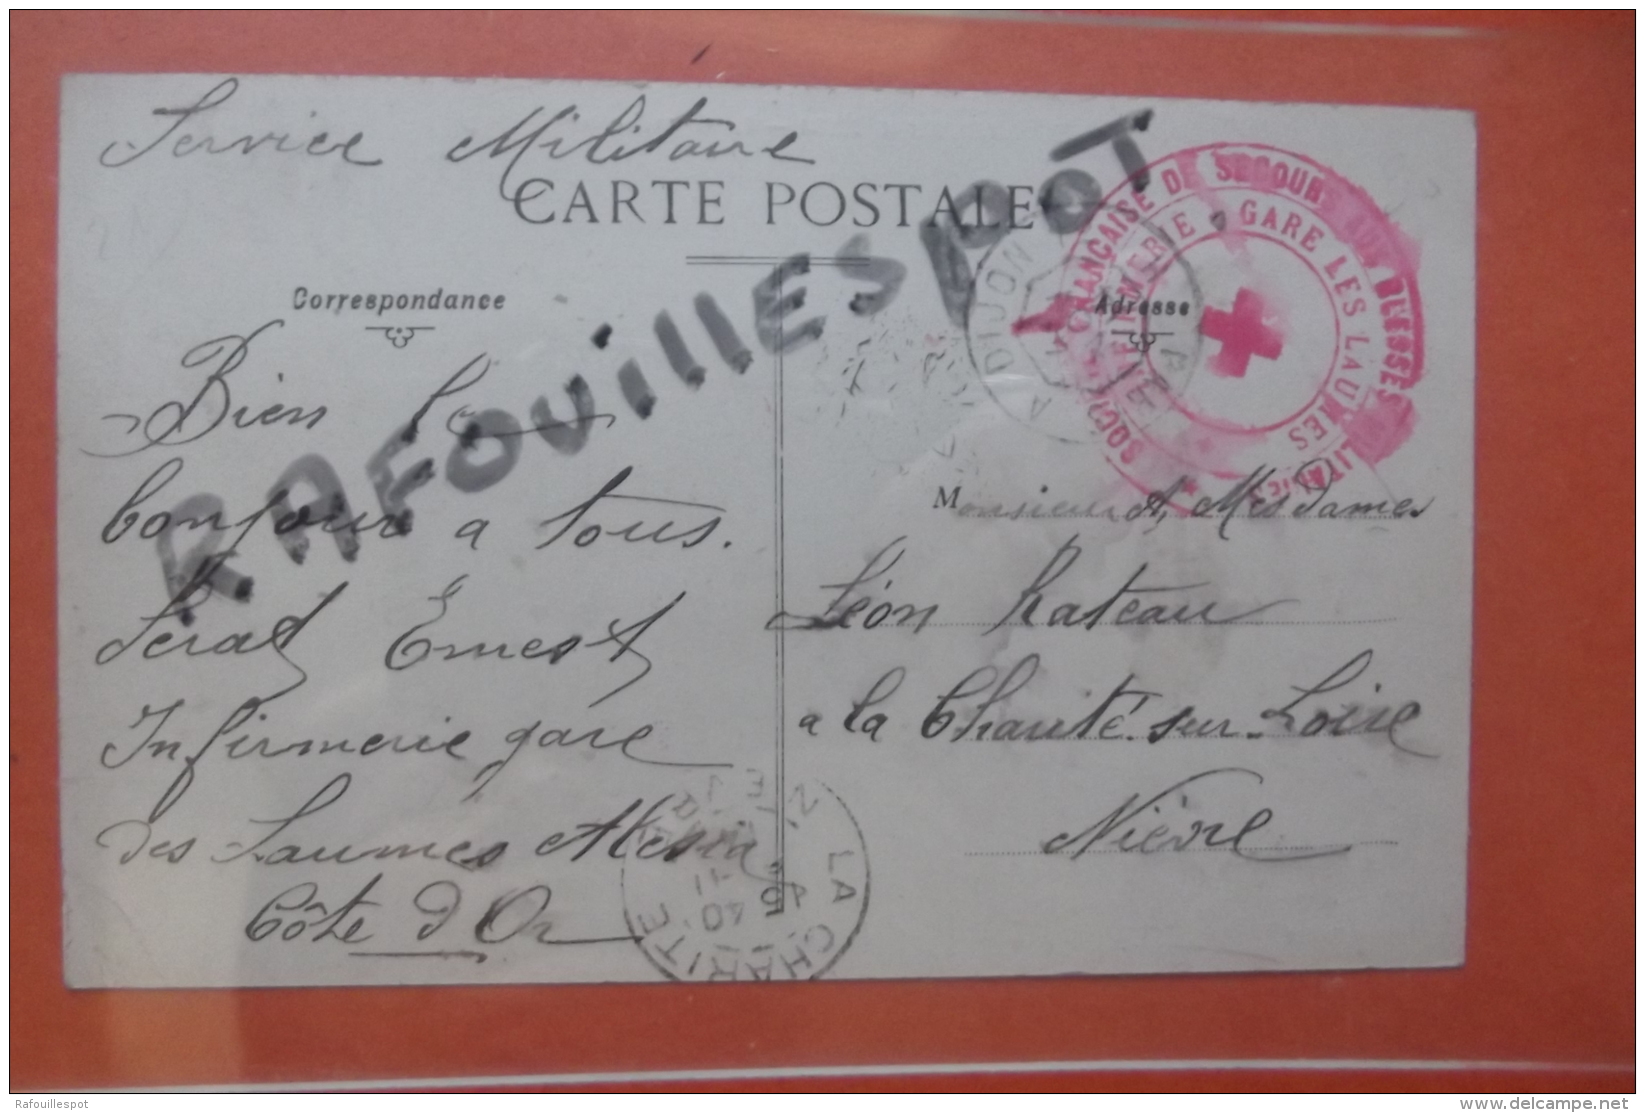 Service Militaire
CARTE POSTALE
RAFOUILLESPOT
Correspondance
Adresse
SOCIÉTÉ FRANÇAISE DE SECOURS AUX BLESSÉS MILITAIRES
INFIRMERIE GARE LES LAUMES
A DIJON
Bien le
bonjour a tous.
Ernest
Infirmerie gare
des Laumes Alesia
Côte d'Or
Monsieur et Mesdames
Léon Rateau
a la Charité-sur-Loire
Nièvre
LA CHARITE
NIEVRE
11
40
Rafouillespot
delcampe.net